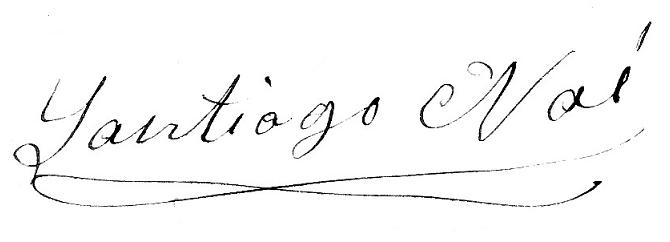 Santiago Noé